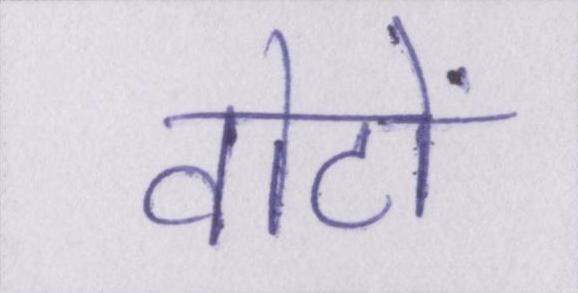 वोटों